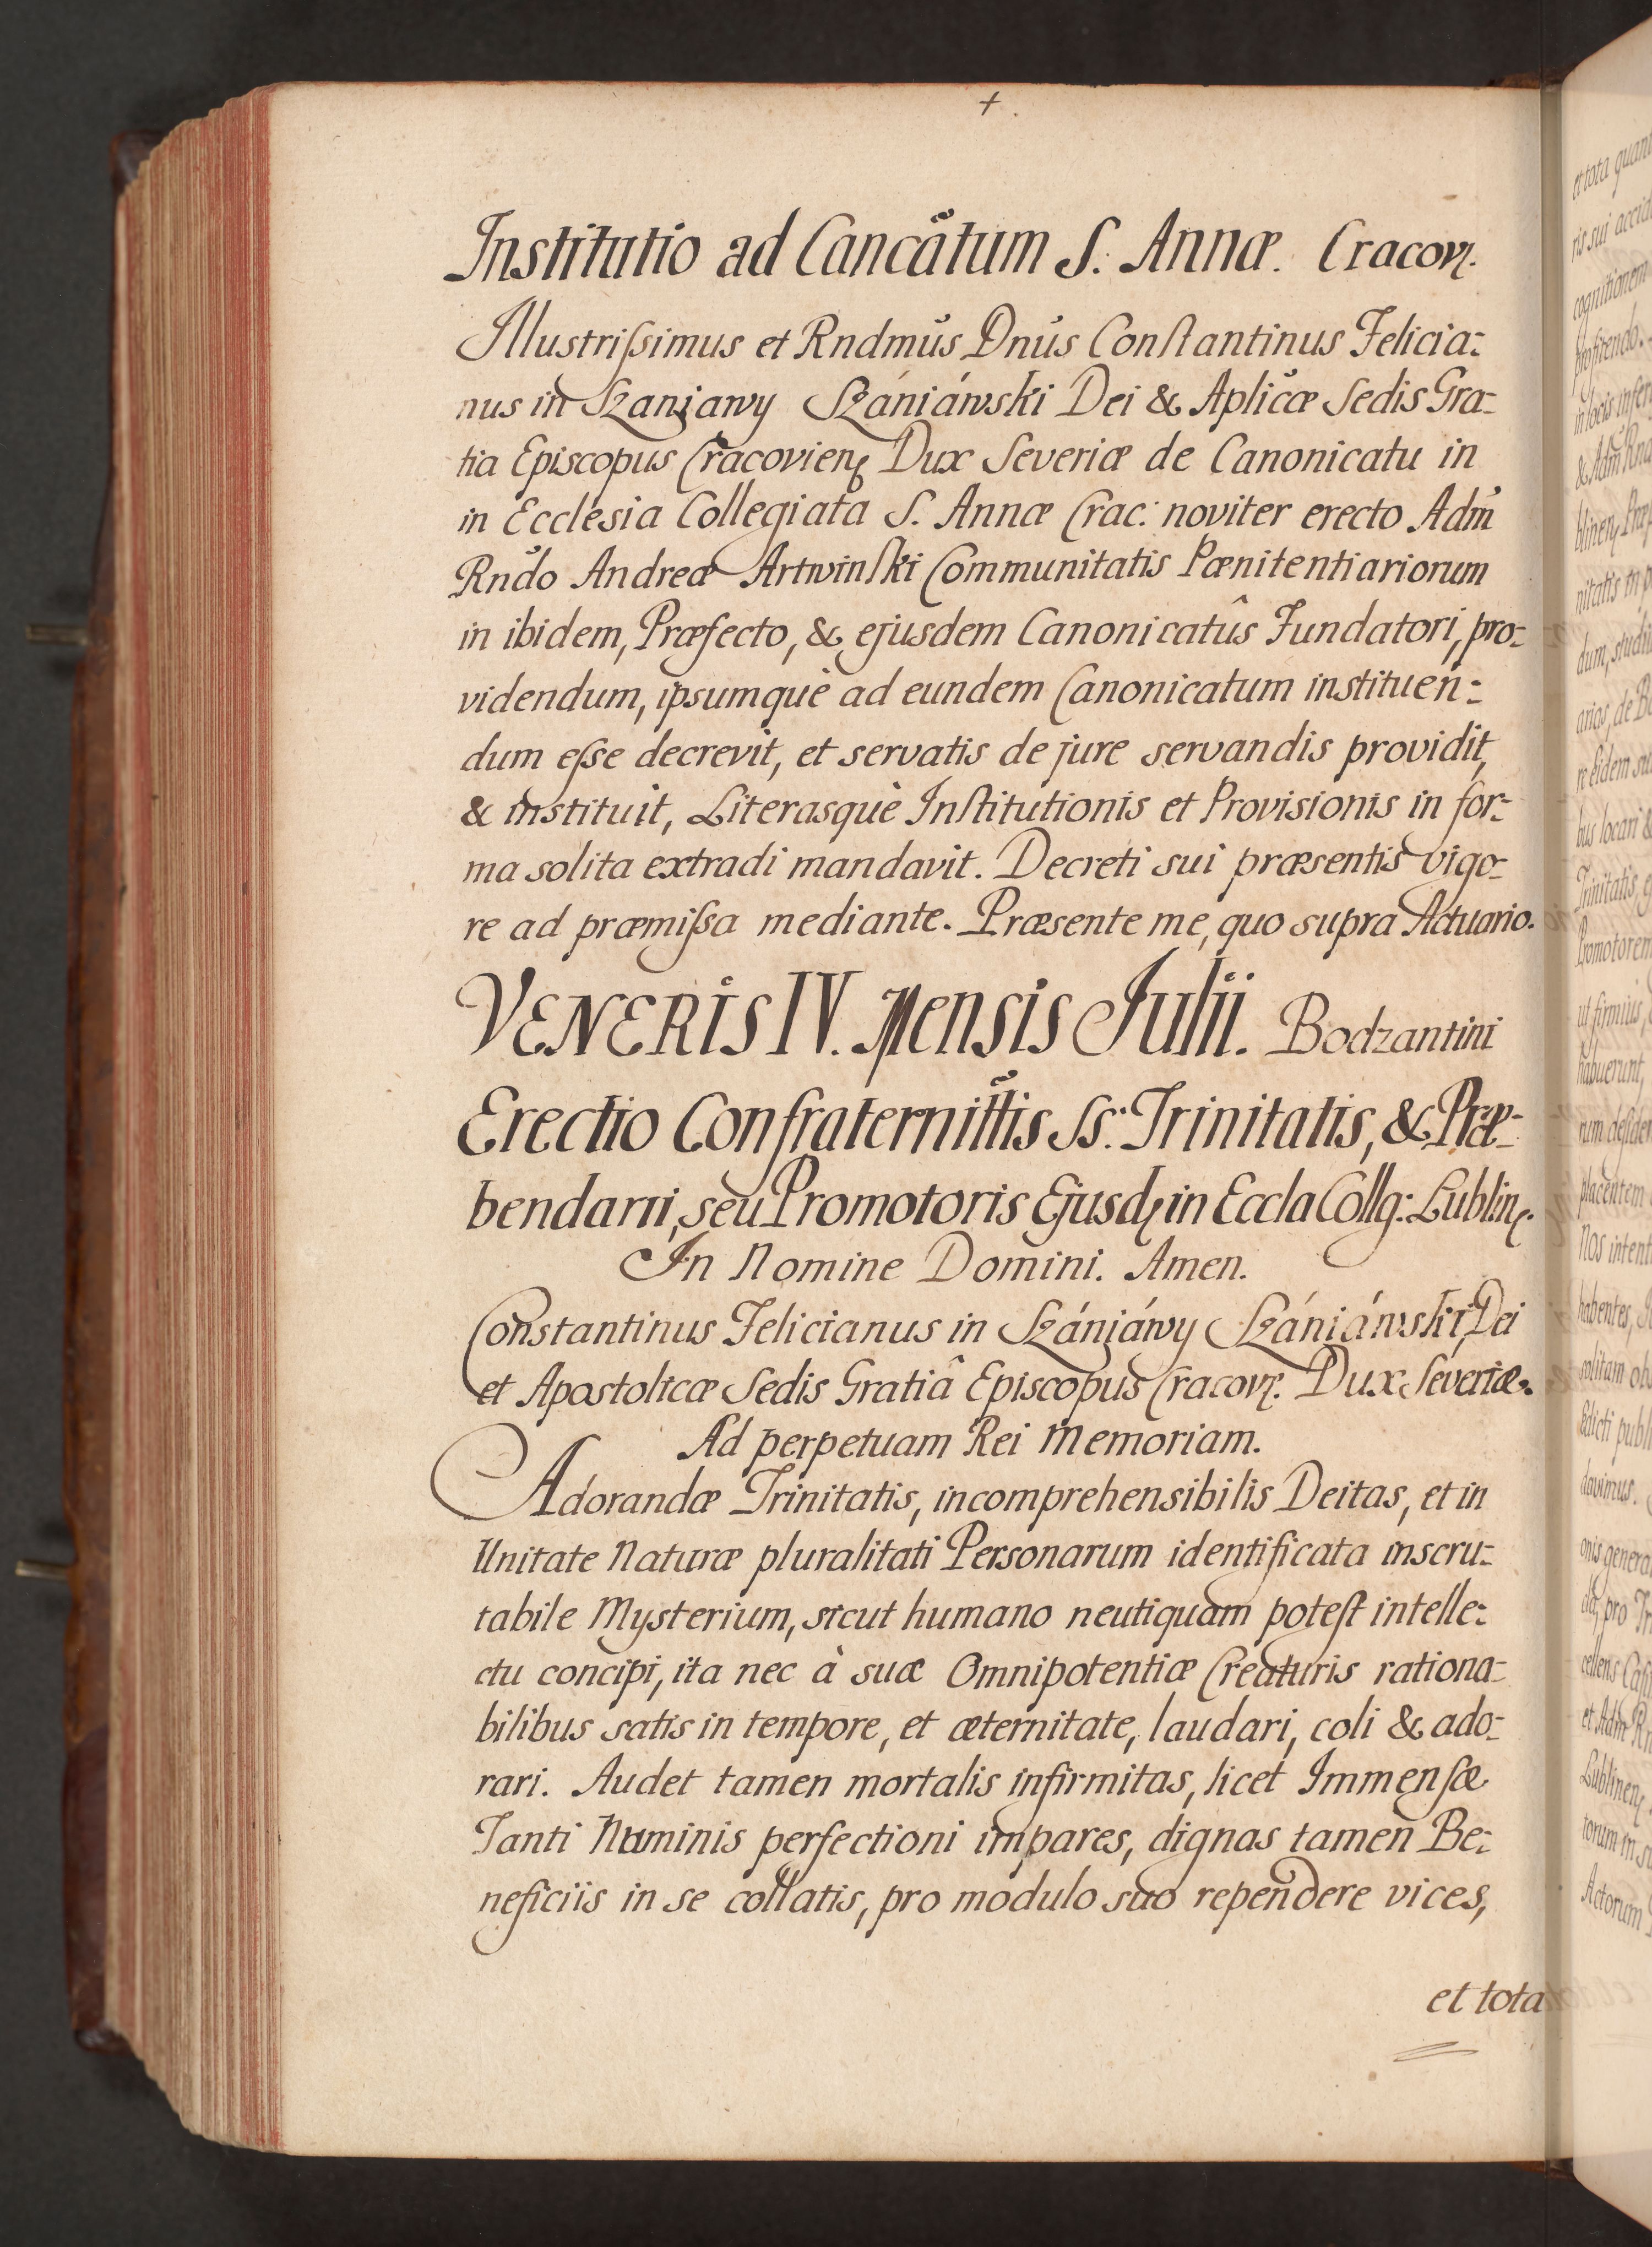 +.
Institutio ad Cancatum S. Annæ. Cracov.
Illustrissimus et Rndmus Dnus Constantinus Felicia:
nus in Szaniawy Szániáwski Dei & Aplicæ Sedis Gra-
tia Episcopus Cracovien Dux Severiæ de Canonicatu in
in Ecclesia Collegiata S. Annæ Crac: noviter erecto Adm
Rndo Andreæ Artwinski Communitatis Pænitentiariorum
in ibidem, Præfecto, & ejusdem Canonicatûs Fundatori, pro-
videndum, ipsumquè ad eundem Canonicatum instituen:
dum esse decrevit, et servatis de jure servandis providit,
& instituit, Literasquè Institutionis et Provisionis in for-
ma solita extradi mandavit. Decreti sui præsentis vigo-
re ad præmissa mediante. Præsente me, quo supra Actuario.
VENERIS IV. Mensis Julii. Bodzantini
Erectio Confraternittis SS: Trinitatis, & Præ-
bendarii, seu Promotoris Ejusd in Eccla Collg: Lublin.
In Nomine Domini. Amen.
Constantinus Felicianus in Szániáwy Szániáwski, Dei
et Apostolicæ Sedis Gratiâ Episcopus Cracov. Dux Severiæ.
Ad perpetuam Rei Memoriam.
Adorandæ Trinitatis, incomprehensibilis Deitas, et in
Unitate Naturæ pluralitati Personarum identificata inscru-
tabile Mysterium, sicut humano neutiquam potest intelle:
ctu concipi, ita nec à suæ Omnipotentiæ Creaturis rationa-
bilibus satis in tempore, et æternitate, laudari, coli & ado-
rari. Audet tamen mortalis infirmitas, licet Immensæ
Tanti Numinis perfectioni impares, dignas tamen Be:
neficiis in se collatis, pro modulo suo rependere vices,
et tota